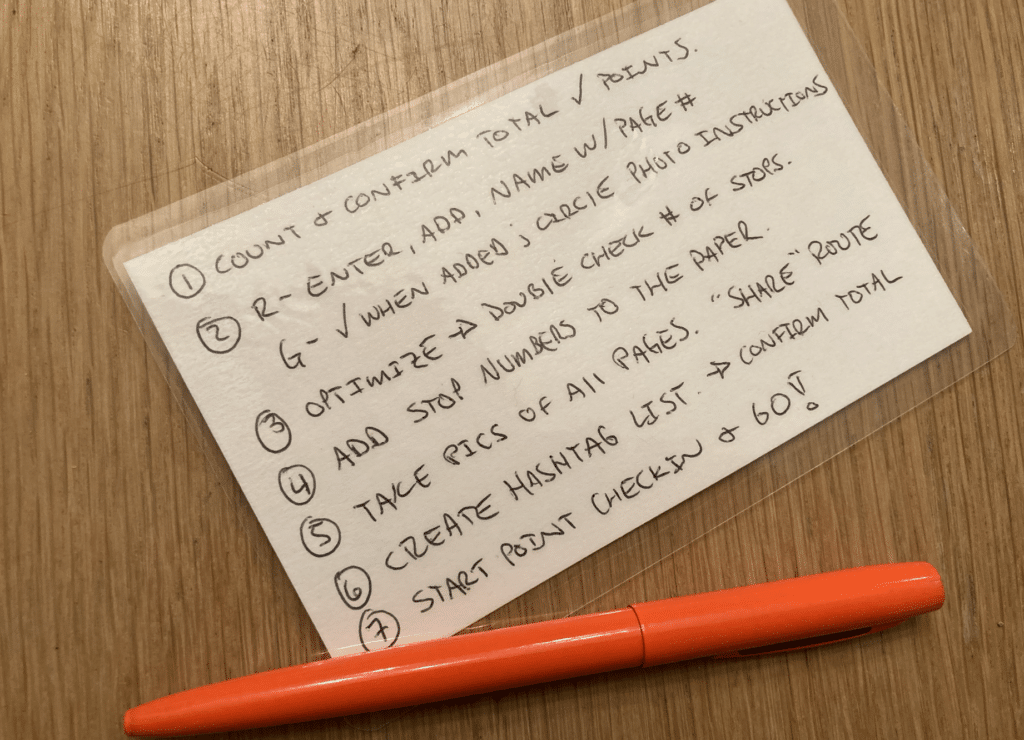 ① COUNT & CONFIRM TOTAL ✓ POINTS.
② R- ENTER, ADD, NAME W/PAGE #
G- ✓ WHEN ADDED; CIRCLE PHOTO INSTRUCTIONS
③ OPTIMIZE → DOUBLE CHECK # OF STOPS.
④ ADD STOP NUMBERS TO THE PAPER.
⑤ TAKE PICS OF All PAGES. "SHARE" ROUTE
⑥ CREATE HASHTAG LIST. → CONFIRM TOTAL
⑦ START POINT CHECKIN & GO!!